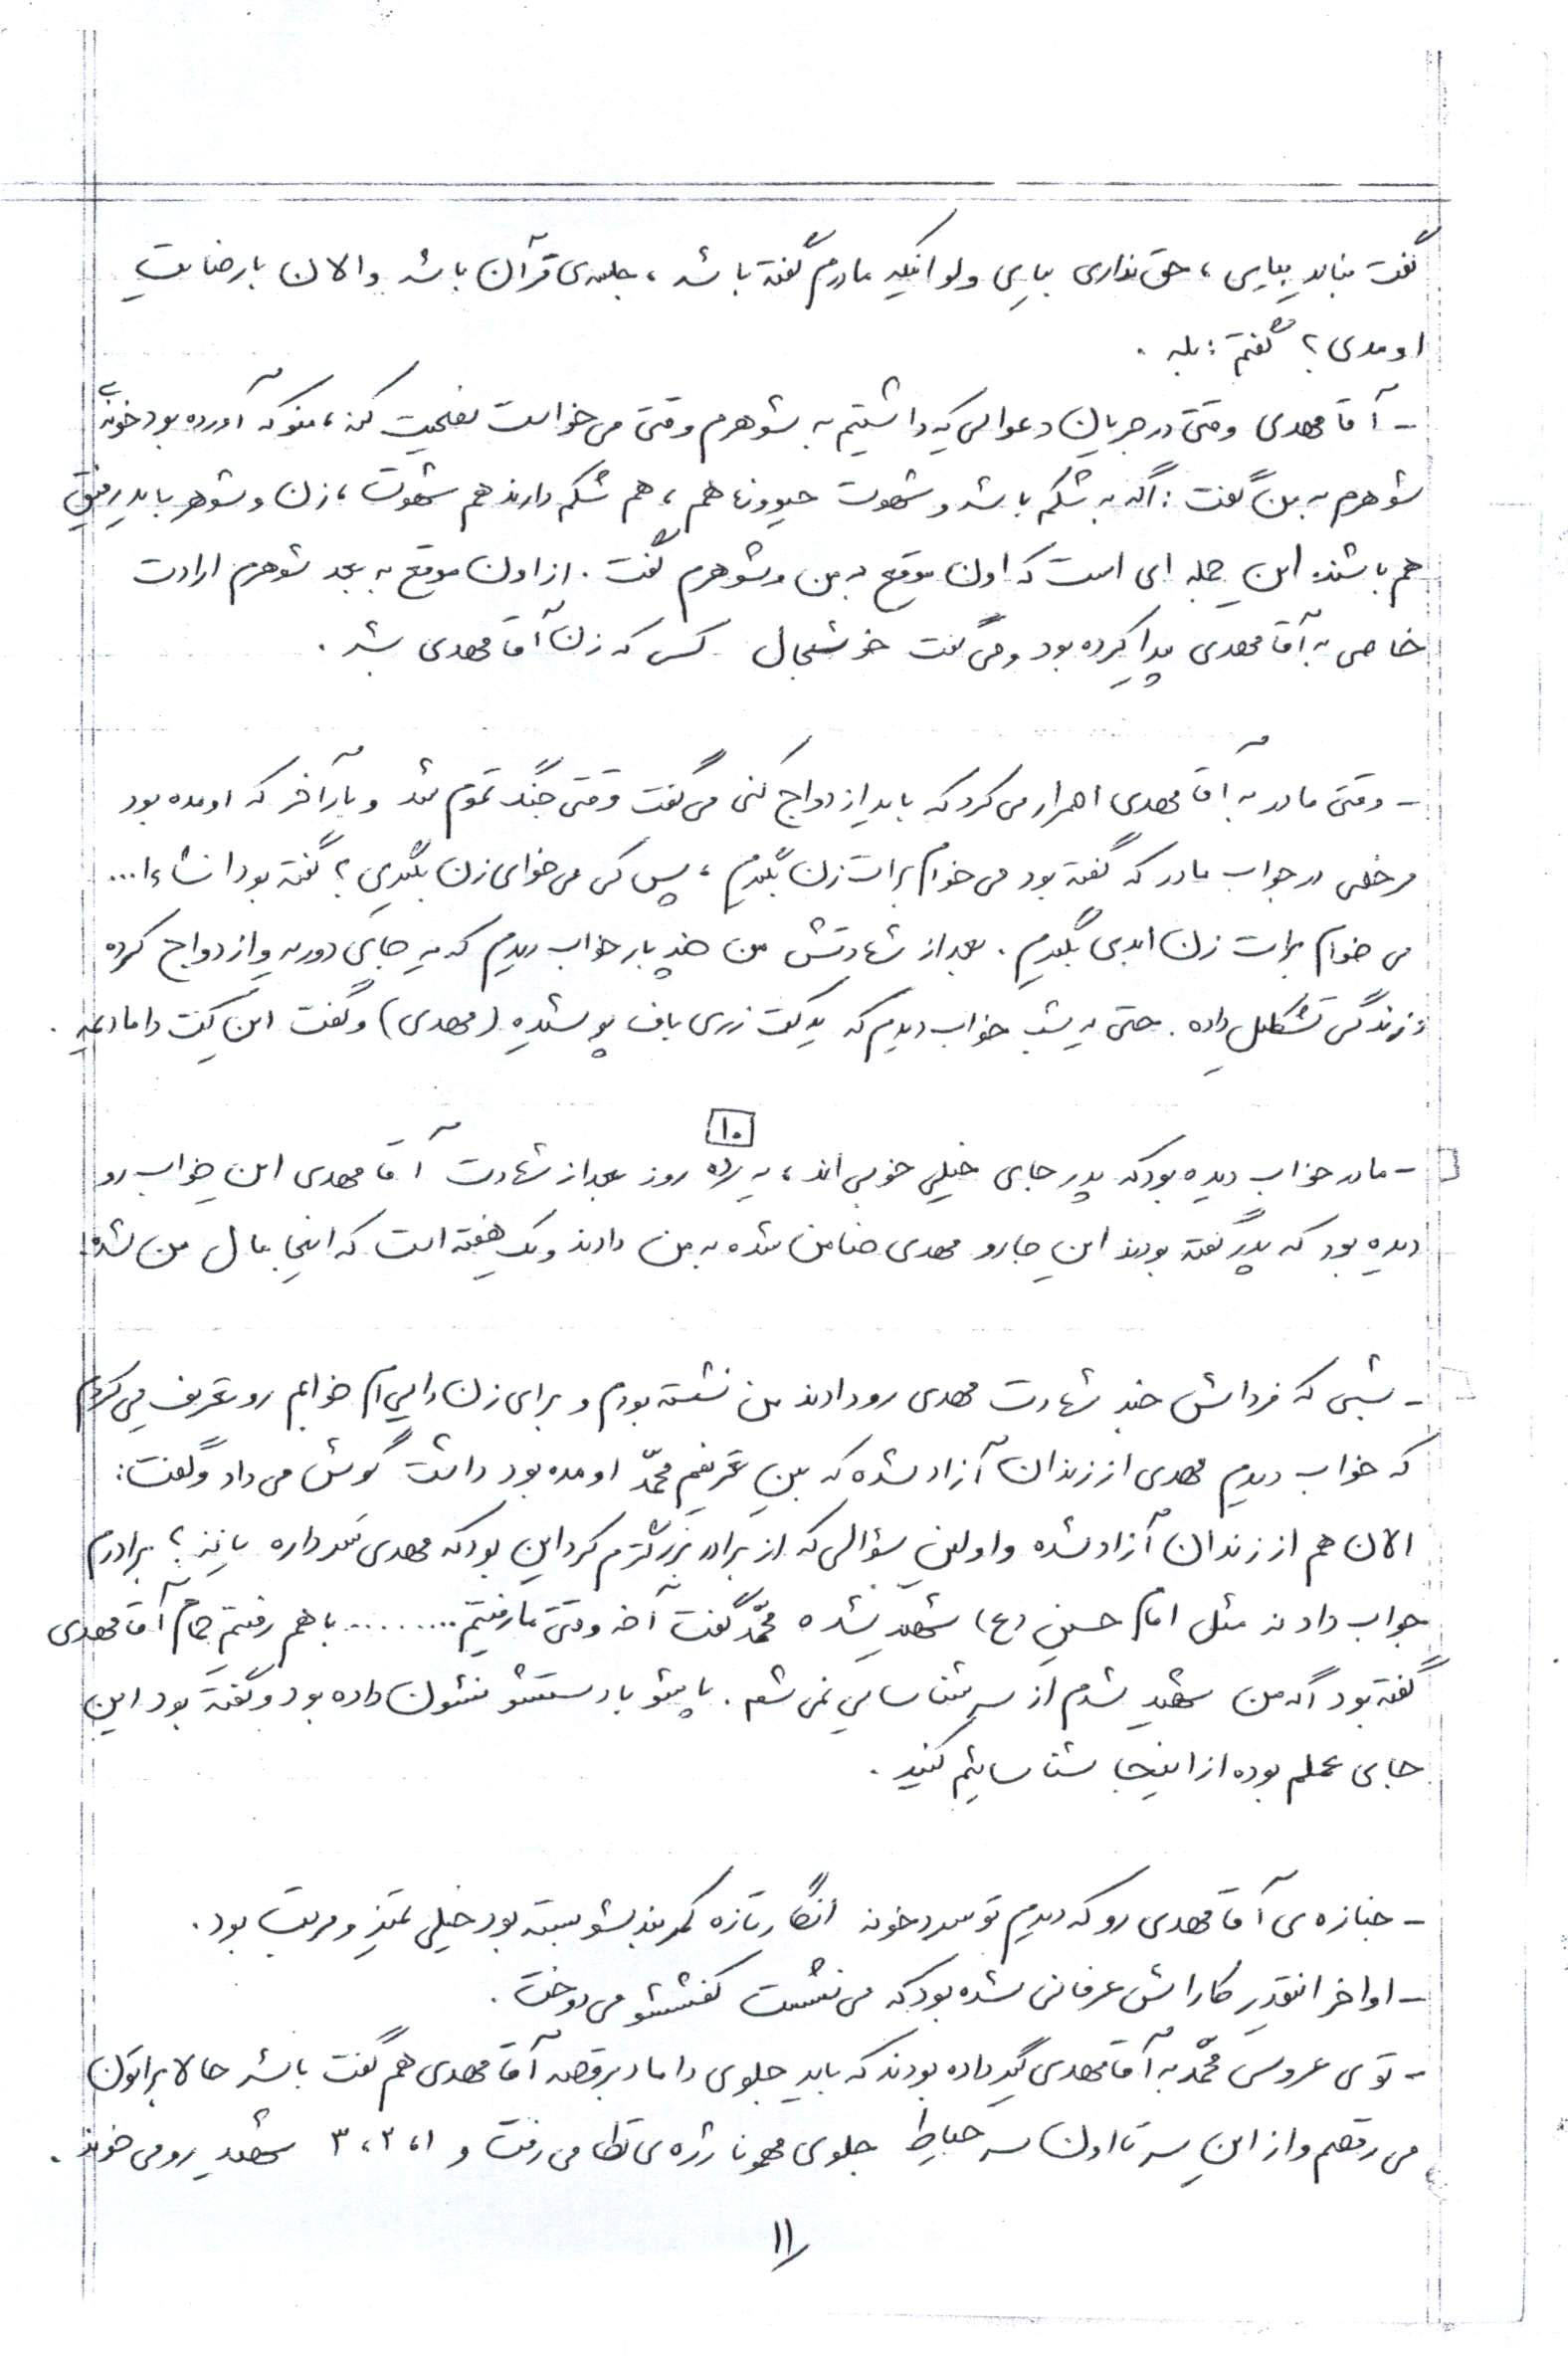 گفت نباید بیایی، حق نداری بیایی ولو اینکه مادرم گفته باشه، جلسه‌ی قرآن باشه والان با رضایت
اومدی؟ گفتم: بله.
- آقا مهدی وقتی در جریان دعوایی که داشتیم به شوهرم وقتی می‌خواست نصیحت کنه، منو که آورده بود خونه‌ی
شوهرم به من گفت: اگه به شکم باشه و شهوت حیوونا هم، هم شکم دارند هم شهوت، زن و شوهر باید رفیق
هم باشند. این جمله ای است که اون موقع به من و شوهرم گفت. از اون موقع به بعد شوهرم ارادت
خاصی به آقا مهدی پیدا کرده بود و می‌گفت خوشبحال کسی که زن آقا مهدی بشه.
- وقتی مادر به آقا مهدی اصرار می‌کرد که باید ازدواج کنی می‌گفت وقتی جنگ تموم شد و بار آخر که اومده بود
مرخصی در جواب مادر که گفته بود می‌خوام برات زن بگیرم، پس کی می‌خوای زن بگیری؟ گفته بود انشاءا...
می‌خوام برات زن ابدی بگیرم. بعد از شهادتش من چند بار خواب دیدم که یه جایی دوریه و ازدواج کرده
و زندگی تشکیل داده. حتی یه شب خواب دیدم که یه کت زری باف پوشیده (مهدی) و گفت این کت دامادیمه.
۱۰
- مادر خواب دیده بود که پدر جای خیلی خوبی‌اند، یه ده روز بعد از شهادت آقا مهدی این خواب رو
دیده بود که پدر گفته بودند این جا رو مهدی ضامن شده به من دادند و یک هفته است که اینجا مال من شده.
- شبی که فرداش خبر شهادت مهدی رو دادند من نشسته بودم و برای زن دایی‌ام خوابم رو تعریف می‌کردم
که خواب دیدم مهدی از زندان آزاد شده که بین تعریفم محمّد اومده بود داشت گوش می‌داد و گفت:
الان هم از زندان آزاد شده و اولین سؤالی که از برادر بزرگترم کرد این بود که مهدی سر داره یا نه؟ برادرم
جواب داد نه مثل امام حسین (ع) شهید شده محمّد گفت آخه وقتی ما رفتیم ........ با هم رفتیم حمام آقا مهدی
گفته بود اگه من شهید شدم از سر شناسایی نمی‌شم. پاشو یا دستشو نشون داده بود و گفته بود این
جای عملم بوده از اینجا شناسایی‌م کنید.
- جنازه‌ی آقا مهدی رو که دیدم تو سردخونه انگار تازه کمربندشو بسته بود خیلی تمیز و مرتب بود.
- اواخر انقدر کاراش عرفانی شده بود که می‌نشست کفششو می‌دوخت.
- توی عروسی محمّد به آقا مهدی گیر داده بودند که باید جلوی داماد برقصه آقا مهدی هم گفت باشه حالا براتون
می‌رقصم و از این سر تا اون سر حیاط جلوی مهمونا رژه‌ی نظامی رفت و ۱، ۲، ۳ شهید رو می‌خوند.
۱۱